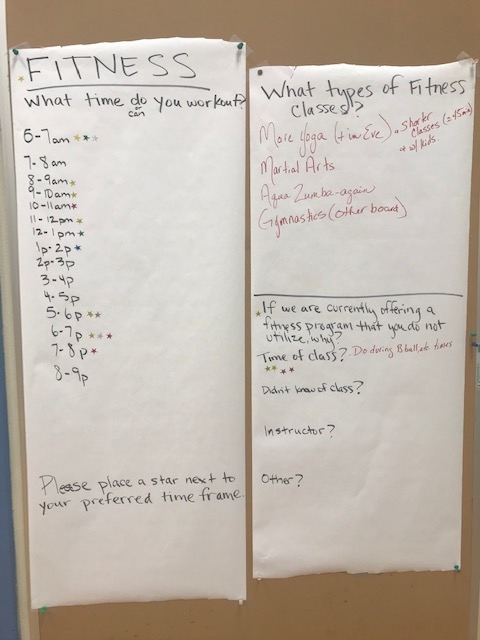 FITNESS
What time do you workout?
or
can
6-7am
7-8am
8-9am
9-10am
10-11am
11-12pm
12-1pm
1p-2p
2p-3p
3-4p
4-5p
5-6p
6-7p
7-8p
8-9p
Please place a star next to
your preferred time frame.
What types of Fitness
Classes?
More Yoga (+ in Eve)
Shorter
Classes (≤45min)
+ w/ kids
Martial Arts
Aqua Zumba-again
Gymnastics (other board)
If we are currently offering a
fitness program that you do not
utilize, why?
Time of class? Do during Bball, etc. times
Didn't know of class?
Instructor?
Other?